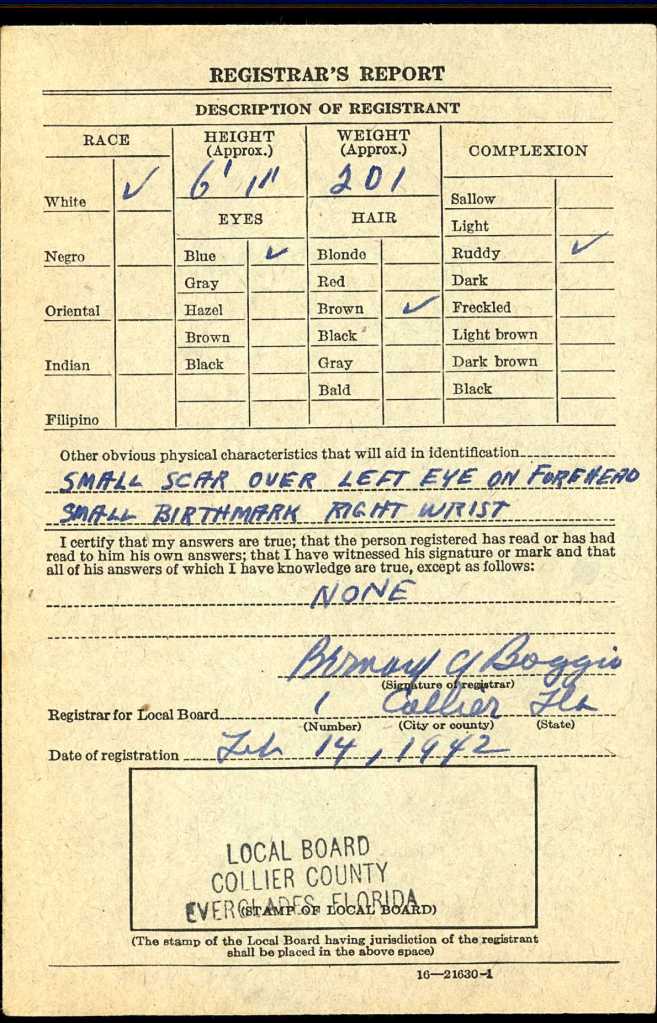 REGISTRAR'S REPORT
DESCRIPTION OF REGISTRANT
RACE
HEIGHT
(Approx.)
WEIGHT
(Approx.)
COMPLEXION
White ✓
6' 1"
201
Sallow
EYES
HAIR
Light
Negro
Blue ✓
Blonde
Ruddy ✓
Gray
Red
Dark
Oriental
Hazel
Brown ✓
Freckled
Brown
Black
Light brown
Indian
Black
Gray
Dark brown
Bald
Black
Filipino
Other obvious physical characteristics that will aid in identification
SMALL SCAR OVER LEFT EYE ON FOREHEAD
SMALL BIRTHMARK RIGHT WRIST
I certify that my answers are true; that the person registered has read or has had
read to him his own answers; that I have witnessed his signature or mark and that
all of his answers of which I have knowledge are true, except as follows:
NONE
Bernard G Boggis
(Signature of registrar)
Registrar for Local Board 1 Collier Fla
(Number) (City or county) (State)
Date of registration Feb 14, 1942
LOCAL BOARD
COLLIER COUNTY
EVERGLADES FLORIDA
(STAMP OF LOCAL BOARD)
(The stamp of the Local Board having jurisdiction of the registrant
shall be placed in the above space)
16—21630-1